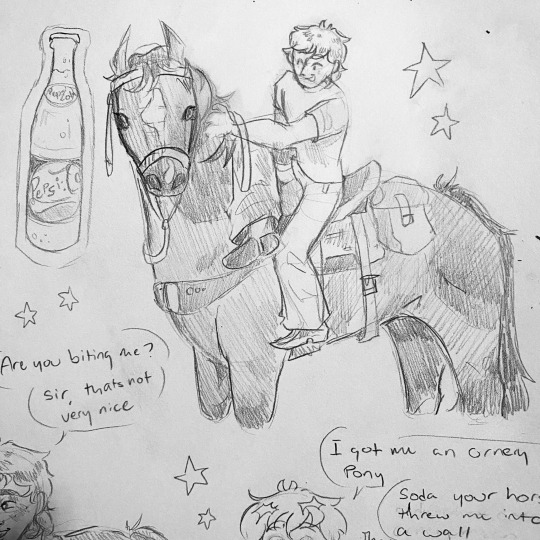 Pepsi-Cola
Pepsi:Co
Are you biting me?
sir, thats not
very nice
I got me an ornery
Pony
Soda your hors
threw me into
a wall